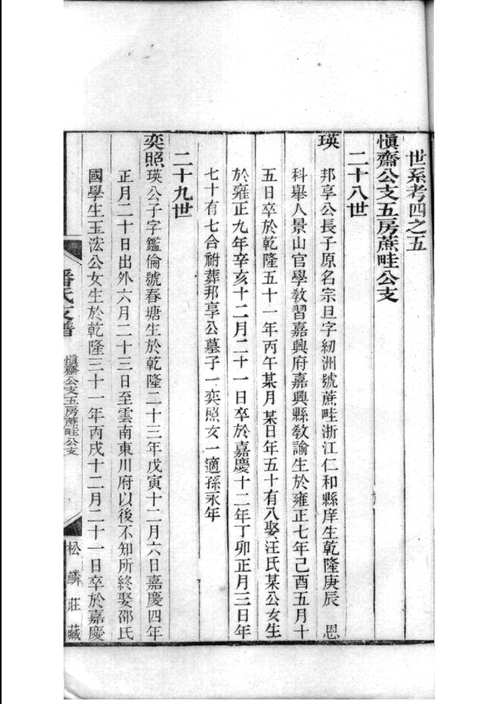 世系考四之五
慎齋公支五房蔗畦公支
二十八世
瑛　邦享公長子原名宗旦字紉洲號蔗畦浙江仁和縣庠生乾隆庚辰　恩
科舉人景山官學教習嘉興府嘉興縣教諭生於雍正七年己酉五月十
五日卒於乾隆五十一年丙午某月某日年五十有八娶汪氏某公女生
於雍正九年辛亥十二月二十一日卒於嘉慶十二年丁卯正月三日年
七十有七合祔葬邦享公墓子一奕照女一適孫永年
二十九世
奕照　瑛公子字鑑倫號春塘生於乾隆二十三年戊寅十二月六日嘉慶四年
正月二十日出外六月二十三日至雲南東川府以後不知所終娶邵氏
國學生玉浤公女生於乾隆三十一年丙戌十二月二十一日卒於嘉慶
潘氏支譜
慎齋公支五房蔗畦公支
松鱗莊藏